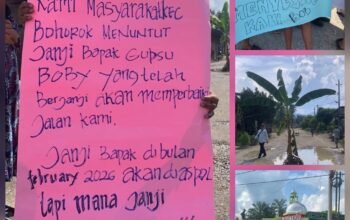 Kami Masyarakat Kec
Bohorok Menuntut
Janji Bapak Gubsu
Boby yang telah
Berjanji akan memperbaiki
Jalan kami.
Janji Bapak dibulan
february 2026 akan diaspal
tapi mana janji